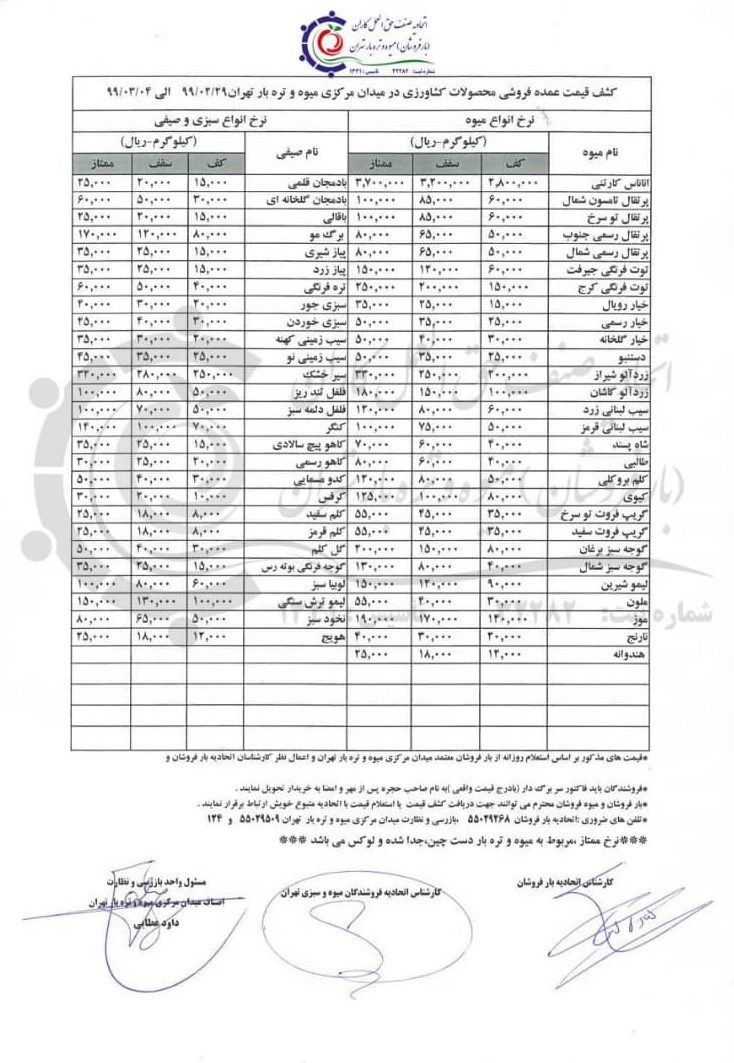 اتحادیه صنف حق العمل کاران
(بارفروشان) میوه و تره بار تهران
شماره ثبت: ۲۲۲۸۲ تاسیس: ۱۳۲۱
کشف قیمت عمده فروشی محصولات کشاورزی در میدان مرکزی میوه و تره بار تهران ۹۹/۰۲/۲۹ الی ۹۹/۰۳/۰۴
نرخ انواع میوه نرخ انواع سبزی و صیفی
نام میوه (کیلوگرم-ریال) نام صیفی (کیلوگرم-ریال)
کف سقف ممتاز کف سقف ممتاز
اناناس کارتنی ۲,۸۰۰,۰۰۰ ۳,۲۰۰,۰۰۰ ۳,۷۰۰,۰۰۰ بادمجان قلمی ۱۵,۰۰۰ ۲۰,۰۰۰ ۲۵,۰۰۰
پرتقال تامسون شمال ۶۰,۰۰۰ ۸۵,۰۰۰ ۱۰۰,۰۰۰ بادمجان گلخانه ای ۳۰,۰۰۰ ۵۰,۰۰۰ ۶۰,۰۰۰
پرتقال تو سرخ ۶۰,۰۰۰ ۸۵,۰۰۰ ۱۰۰,۰۰۰ باقالی ۱۵,۰۰۰ ۲۰,۰۰۰ ۲۵,۰۰۰
پرتقال رسمی جنوب ۵۰,۰۰۰ ۶۵,۰۰۰ ۸۰,۰۰۰ برگ مو ۸۰,۰۰۰ ۱۲۰,۰۰۰ ۱۷۰,۰۰۰
پرتقال رسمی شمال ۵۰,۰۰۰ ۶۵,۰۰۰ ۸۰,۰۰۰ پیاز شیری ۱۵,۰۰۰ ۲۵,۰۰۰ ۳۵,۰۰۰
توت فرنگی جیرفت ۶۰,۰۰۰ ۱۲۰,۰۰۰ ۱۵۰,۰۰۰ پیاز زرد ۱۵,۰۰۰ ۲۵,۰۰۰ ۳۵,۰۰۰
توت فرنگی کرج ۱۵۰,۰۰۰ ۲۰۰,۰۰۰ ۲۵۰,۰۰۰ تره فرنگی ۴۰,۰۰۰ ۵۰,۰۰۰ ۶۰,۰۰۰
خیار رویال ۱۵,۰۰۰ ۲۵,۰۰۰ ۳۵,۰۰۰ سبزی جور ۲۰,۰۰۰ ۳۰,۰۰۰ ۴۰,۰۰۰
خیار رسمی ۲۵,۰۰۰ ۳۵,۰۰۰ ۵۰,۰۰۰ سبزی خوردن ۳۰,۰۰۰ ۴۰,۰۰۰ ۴۵,۰۰۰
خیار گلخانه ۳۰,۰۰۰ ۴۰,۰۰۰ ۵۰,۰۰۰ سیب زمینی کهنه ۲۰,۰۰۰ ۳۰,۰۰۰ ۳۵,۰۰۰
دستنبو ۲۵,۰۰۰ ۳۵,۰۰۰ ۵۰,۰۰۰ سیب زمینی نو ۲۵,۰۰۰ ۳۵,۰۰۰ ۴۵,۰۰۰
زردآلو شیراز ۲۰۰,۰۰۰ ۲۵۰,۰۰۰ ۳۳۰,۰۰۰ سیر خشک ۲۵۰,۰۰۰ ۲۸۰,۰۰۰ ۳۲۰,۰۰۰
زردآلو کاشان ۱۰۰,۰۰۰ ۱۵۰,۰۰۰ ۱۸۰,۰۰۰ فلفل تند ریز ۵۰,۰۰۰ ۸۰,۰۰۰ ۱۰۰,۰۰۰
سیب لبنانی زرد ۶۰,۰۰۰ ۸۰,۰۰۰ ۱۲۰,۰۰۰ فلفل دلمه سبز ۵۰,۰۰۰ ۷۰,۰۰۰ ۱۰۰,۰۰۰
سیب لبنانی قرمز ۵۰,۰۰۰ ۷۵,۰۰۰ ۱۰۰,۰۰۰ کنگر ۷۰,۰۰۰ ۱۰۰,۰۰۰ ۱۴۰,۰۰۰
شاه پسند ۴۰,۰۰۰ ۶۰,۰۰۰ ۷۰,۰۰۰ کاهو پیچ سالادی ۱۵,۰۰۰ ۲۵,۰۰۰ ۳۵,۰۰۰
طالبی ۴۰,۰۰۰ ۶۰,۰۰۰ ۸۰,۰۰۰ کاهو رسمی ۲۰,۰۰۰ ۲۵,۰۰۰ ۳۰,۰۰۰
کلم بروکلی ۵۰,۰۰۰ ۸۰,۰۰۰ ۱۲۰,۰۰۰ کدو مسمایی ۳۰,۰۰۰ ۴۰,۰۰۰ ۵۰,۰۰۰
کیوی ۸۰,۰۰۰ ۱۰۰,۰۰۰ ۱۲۵,۰۰۰ کرفس ۱۰,۰۰۰ ۲۰,۰۰۰ ۳۰,۰۰۰
گریپ فروت تو سرخ ۳۵,۰۰۰ ۴۵,۰۰۰ ۵۵,۰۰۰ کلم سفید ۸,۰۰۰ ۱۸,۰۰۰ ۲۵,۰۰۰
گریپ فروت سفید ۳۵,۰۰۰ ۴۵,۰۰۰ ۵۵,۰۰۰ کلم قرمز ۸,۰۰۰ ۱۸,۰۰۰ ۲۵,۰۰۰
گوجه سبز برغان ۸۰,۰۰۰ ۱۵۰,۰۰۰ ۲۰۰,۰۰۰ گل کلم ۳۰,۰۰۰ ۴۰,۰۰۰ ۵۰,۰۰۰
گوجه سبز شمال ۴۰,۰۰۰ ۸۰,۰۰۰ ۱۳۰,۰۰۰ گوجه فرنگی بوته رس ۱۵,۰۰۰ ۲۵,۰۰۰ ۳۵,۰۰۰
لیمو شیرین ۹۰,۰۰۰ ۱۲۰,۰۰۰ ۱۵۰,۰۰۰ لوبیا سبز ۶۰,۰۰۰ ۸۰,۰۰۰ ۱۰۰,۰۰۰
ملون ۳۰,۰۰۰ ۴۰,۰۰۰ ۵۵,۰۰۰ لیمو ترش سنگی ۱۰۰,۰۰۰ ۱۳۰,۰۰۰ ۱۵۰,۰۰۰
موز ۱۲۰,۰۰۰ ۱۷۰,۰۰۰ ۱۹۰,۰۰۰ نخود سبز ۵۰,۰۰۰ ۶۵,۰۰۰ ۸۰,۰۰۰
نارنج ۲۰,۰۰۰ ۳۰,۰۰۰ ۴۰,۰۰۰ هویج ۱۲,۰۰۰ ۱۸,۰۰۰ ۲۵,۰۰۰
هندوانه ۱۲,۰۰۰ ۱۸,۰۰۰ ۲۵,۰۰۰
*قیمت های مذکور بر اساس استعلام روزانه از بار فروشان معتمد میدان مرکزی میوه و تره بار تهران و اعمال نظر کارشناسان اتحادیه بار فروشان و
*فروشندگان باید فاکتور سر برگ دار (بادرج قیمت واقعی) به نام صاحب حجره پس از مهر و امضا به خریدار تحویل نمایند.
*بار فروشان و میوه فروشان محترم می توانند جهت دریافت کشف قیمت یا استعلام قیمت با اتحادیه متبوع خویش ارتباط برقرار نمایند.
*تلفن های ضروری: اتحادیه بار فروشان ۵۵۰۲۹۲۶۸، بازرسی و نظارت میدان مرکزی میوه و تره بار تهران ۵۵۰۲۹۵۰۹ و ۱۲۴
***نرخ ممتاز ،مربوط به میوه و تره بار دست چین،جدا شده و لوکس می باشد ***
کارشناس اتحادیه بار فروشان
کارشناس اتحادیه فروشندگان میوه و سبزی تهران
مسئول واحد بازرسی و نظارت
اصناف میدان مرکزی میوه و تره بار تهران
داود عطایی